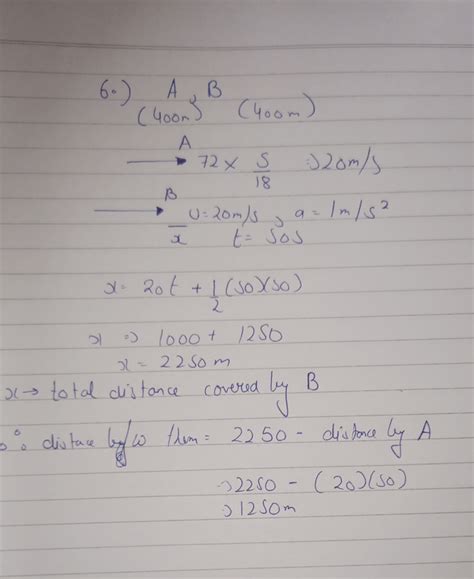 6.) A, B
(400m) (400m)
A
72 × 5/18 ⇒ 20m/s
B
U=20m/s, a = 1m/s²
x t = 50s
x = 20t + 1/2 (50)(50)
x ⇒ 1000 + 1250
x = 2250m
x → total distance covered by B
∴ distace b/w them = 2250 - distance by A
⇒ 2250 - (20)(50)
⇒ 1250m